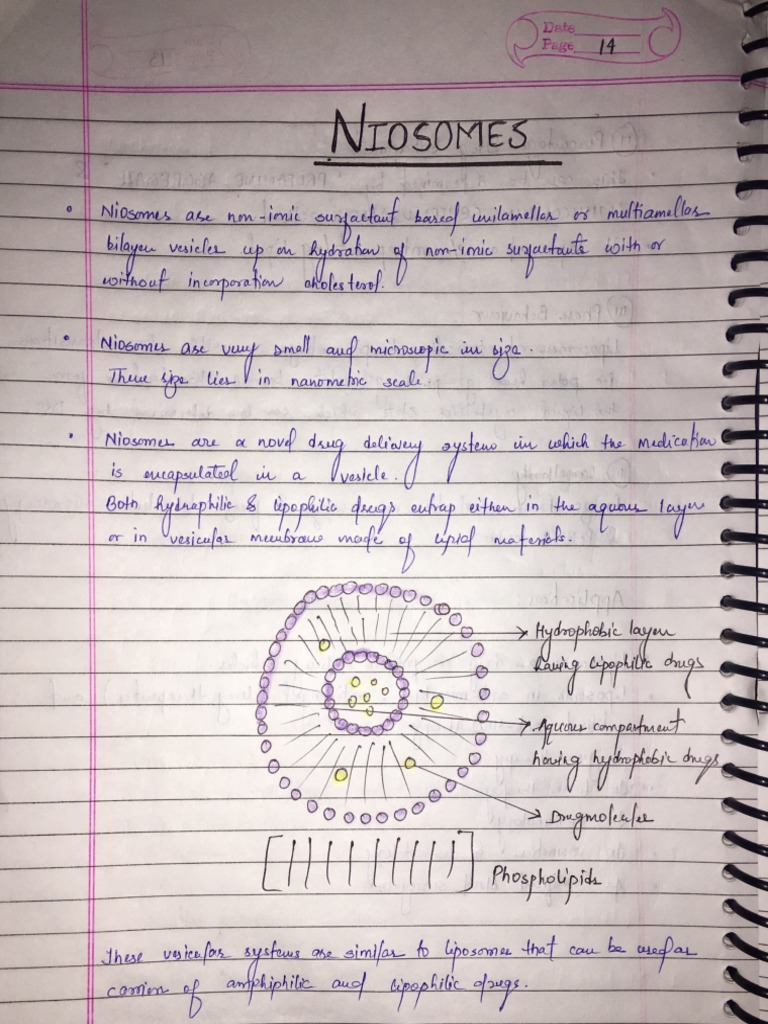 Date
Page 14
NIOSOMES
• Niosomes are non-ionic surfactant based unilamellar or multiamellar
bilayer vesicles up on hydration of non-ionic surfactants with or
without incorporation cholesterol.
• Niosomes are very small and microscopic in size.
There size lies in nanometric scale
• Niosomes are a novel drug delivery system in which the medication
is encapsulated in a vesicle.
Both hydrophilic & lipophilic drugs entrap either in the aqueous layer
or in vesicular membrane made of lipid materials.
Hydrophobic layer
having lipophilic drugs
Aqueous compartment
having hydrophobic drugs
Drug molecules
Phospholipids
These vesicular systems are similar to liposomes that can be used as
carrier of amphiphilic and lipophilic drugs.